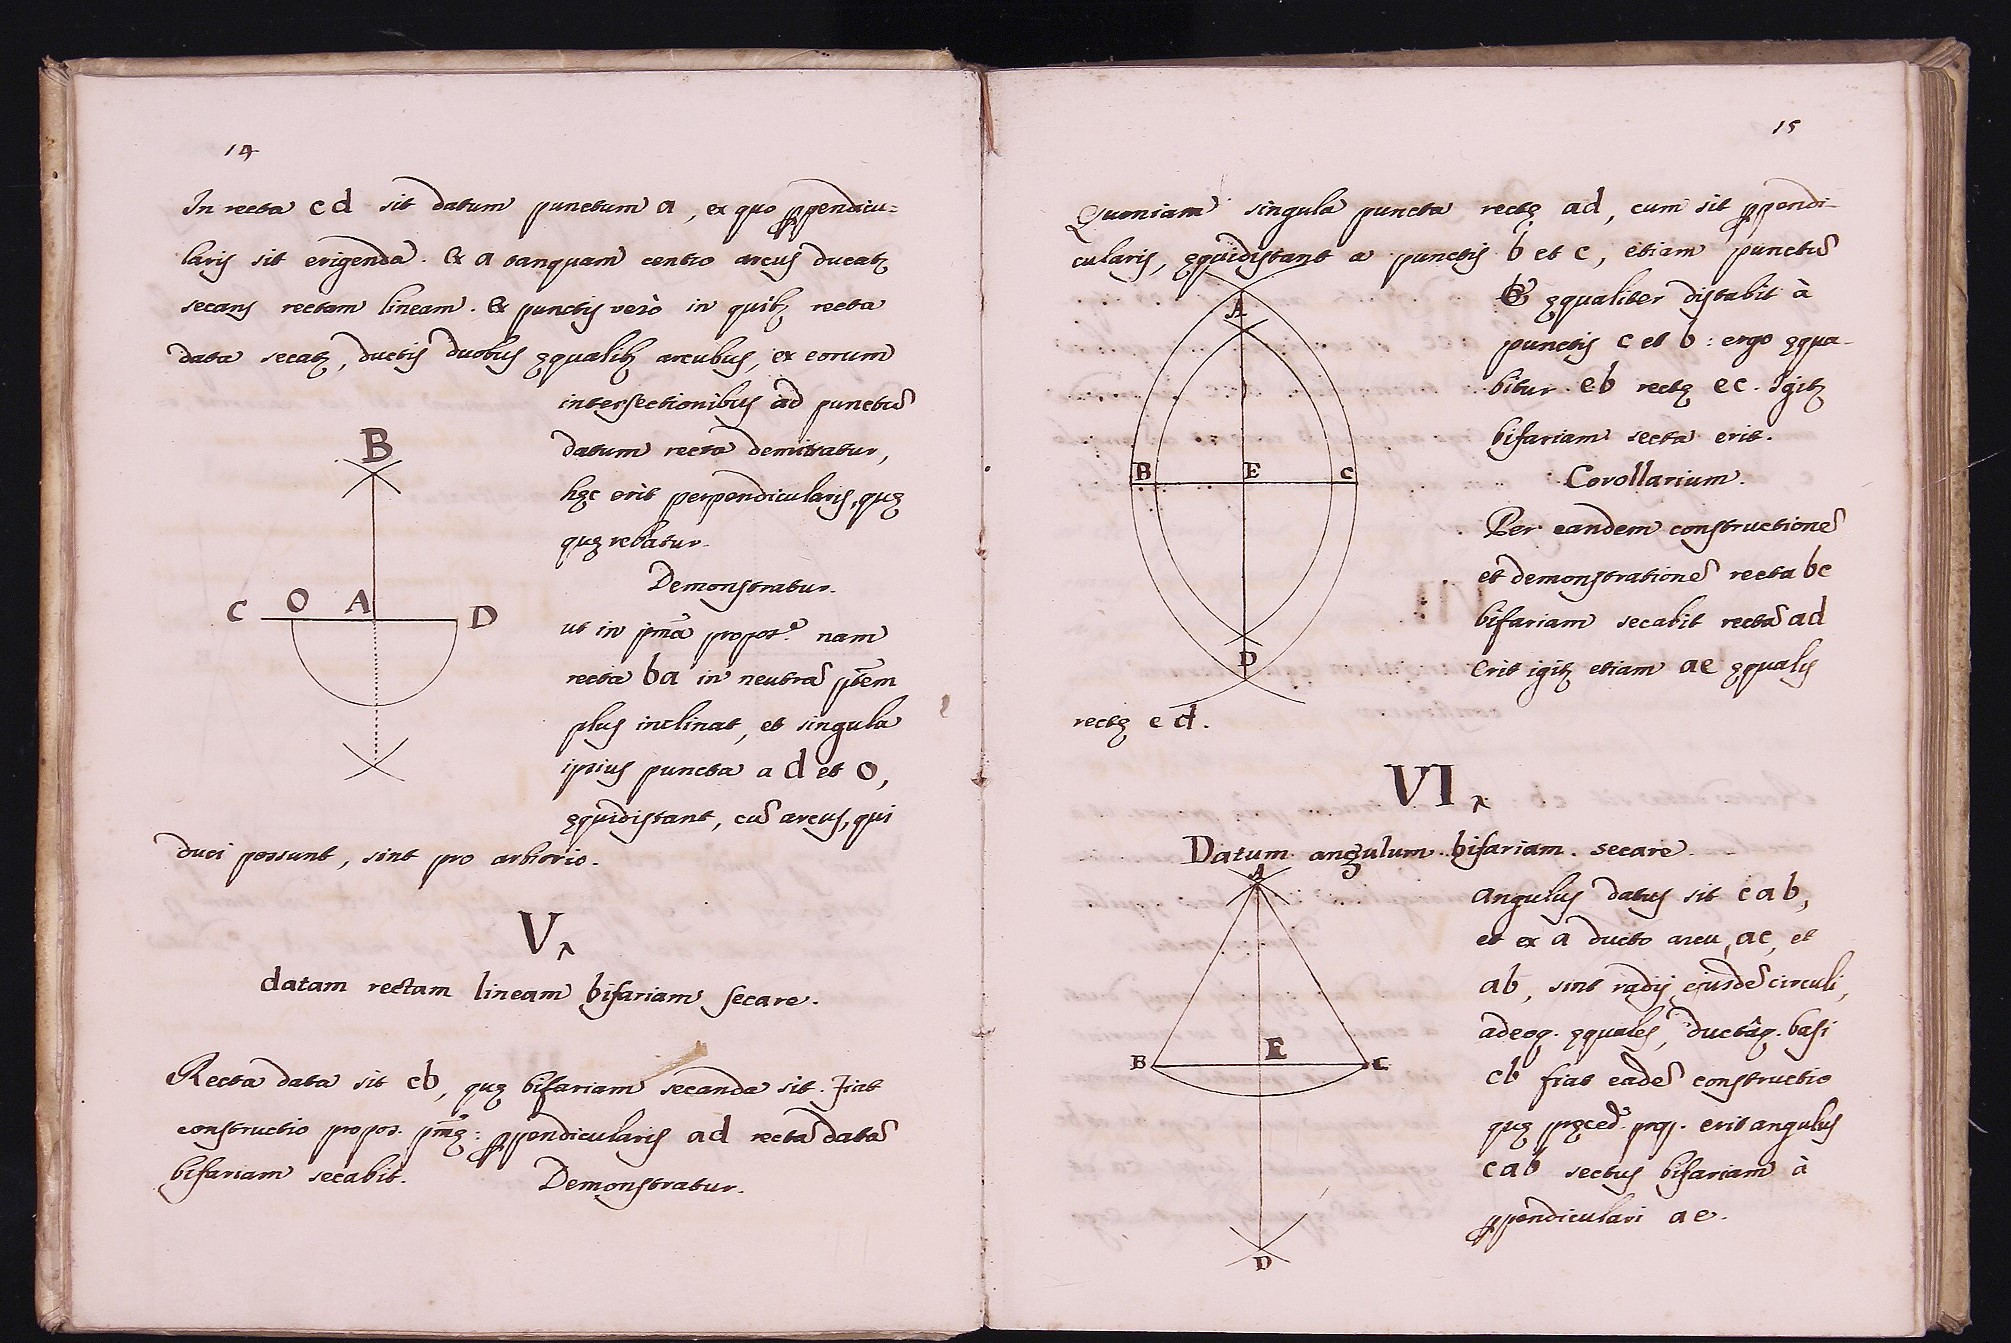 14
In recta cd sit datum punctum a, ex quo ꝑpendicu=
laris sit erigenda. Ex a tanquam centro arcus ducatꝫ
secans rectam lineam. Ex punctis verò in quibꝫ recta
data secatꝫ, ductis duobus ęqualibꝫ arcubus, ex eorum
intersectionibus ad punctũ
datum recta demittatur,
hęc erit perpendicularis, quę
quęrebatur.
Demonstratur.
B
C O A D
ut in pmã propos.ᵉ nam
recta ba in neutrã ptẽm
plus inclinat, et singula
ipsius puncta a d et o,
ęquidistant, cũ arcus, qui
duci possunt, sint pro arbitrio.
V
datam rectam lineam bifariam secare.
Recta data sit cb, quę bifariam secanda sit. Fiat
constructio propos. pmę: ꝑpendicularis ad rectã datã
bifariam secabit. Demonstratur.
15
Quoniam singula puncta rectę ad, cum sit ꝑpendi-
cularis, ęquidistant a punctis b et c, etiam punctũ
e ęqualiter distabit à
punctis c et b: ergo ęqua-
bitur eb rectę ec. Igitꝫ
bifariam secta erit.
A
B E C
D
Corollarium.
Per eandem constructionẽ
et demonstrationẽ recta bc
bifariam secabit rectã ad
erit igitꝫ etiam ae ęqualis
rectę ed.
VI
Datum angulum bifariam secare.
A
B E C
D
Angulus datus sit cab,
et ex a ducto arcu, ac, et
ab, sint radij ejusdẽ circuli,
adeoq. ęquales, ductâq. basi
cb fiat eadẽ constructio
quę pręced. prop. erit angulus
cab sectus bifariam à
ꝑpendiculari ae.